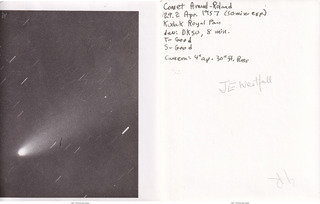 Comet Arend-Roland
29.2 Apr. 1957 (50 min exp)
Kodak Royal Pan
dev: DK50, 8 min.
T-Good
S-Good
Camera: 4"ap. 30"fl.
JE Westfall